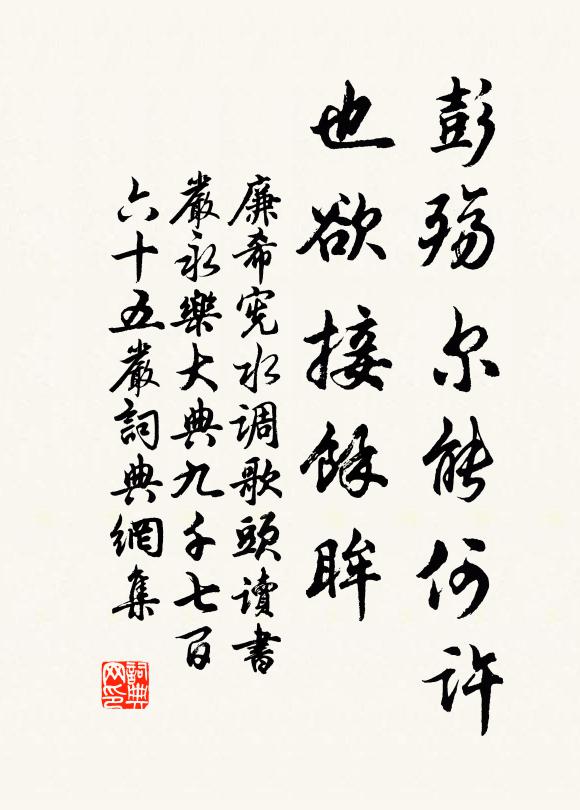 彭殤尔能何许
也欲接餘眸
廉希宪水调歌頭讀書
嚴永樂大典九千七百
六十五嚴詞典網集
詞典
网印